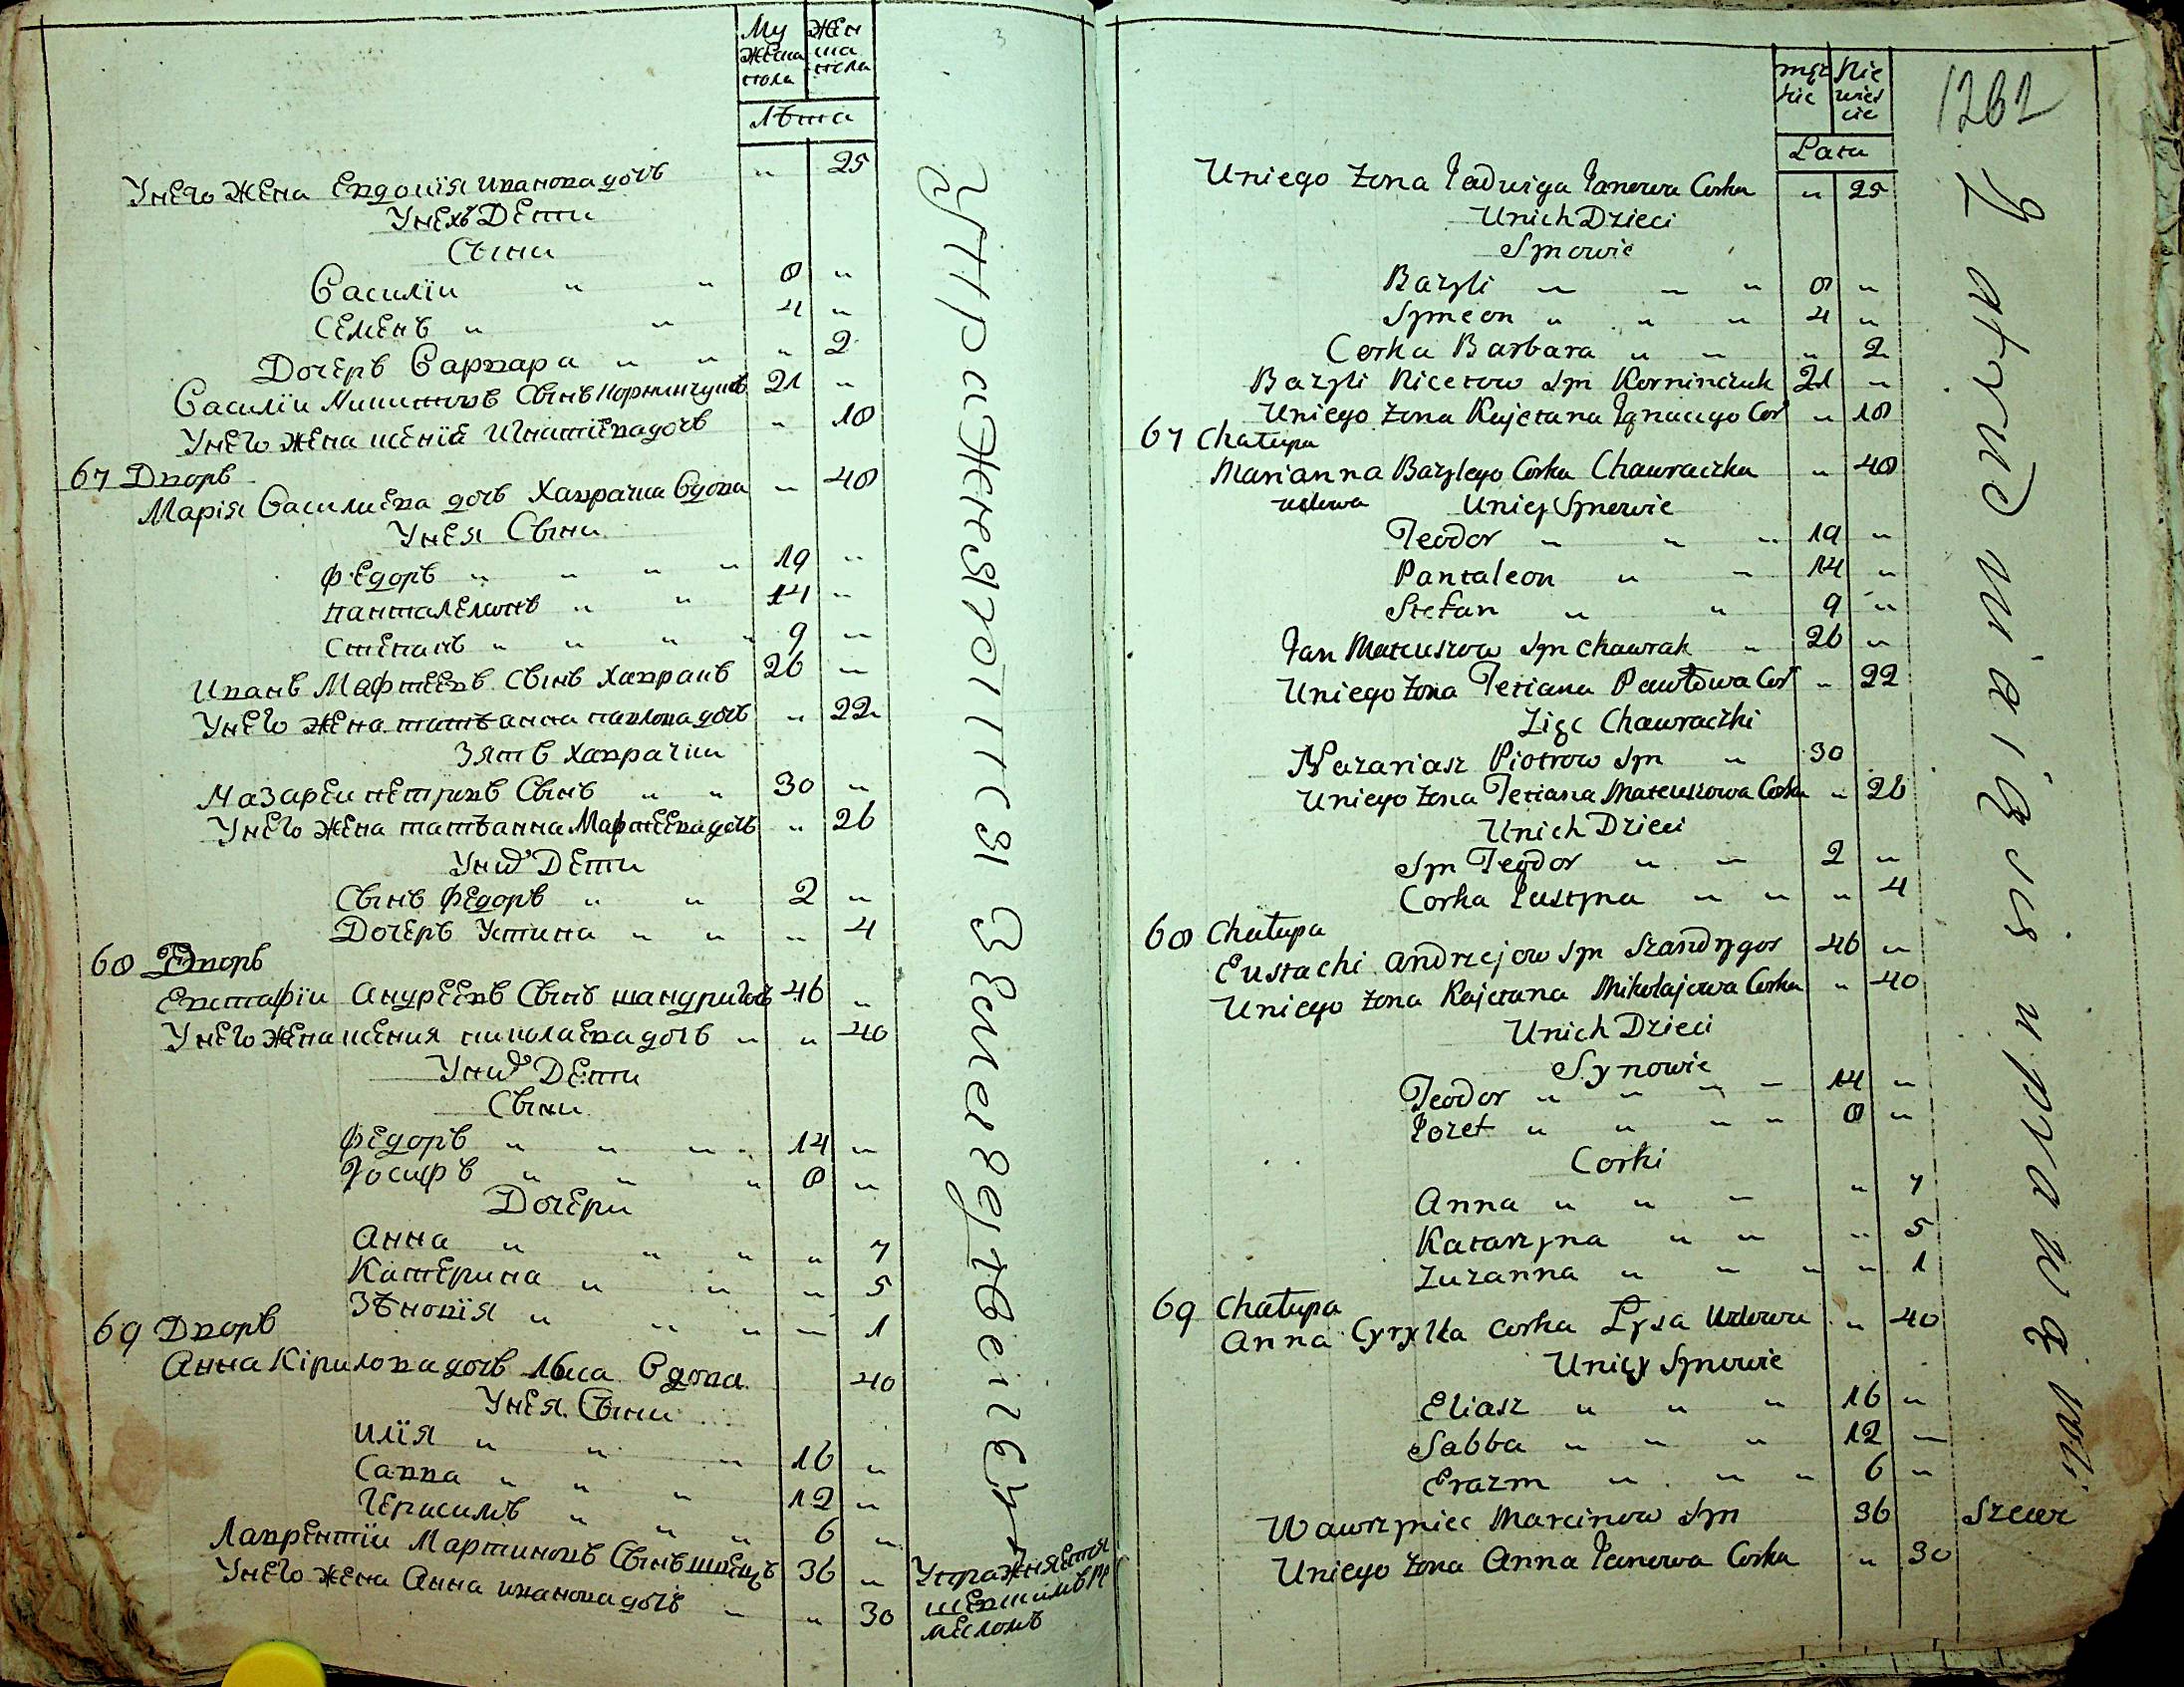 Му жеска пола
Жен ска пола
Лѣта
Унего жена Евдокія Иванова дочь " 25
Унехъ Дети
Сыни
Василіи " " 8 "
Семенъ " " 4 "
Дочеръ Варвара " " " 2
Василіи Никитовъ Сынъ Корнинчукъ 21 "
Унего жена Ксеніе Игнатіева дочь " 18
67 Дворъ
Марія Василиева дочь Хаврачка Вдова " 48
Унея Сыни
Федоръ " " " " 19 "
Панталемонъ " " 14 "
Степанъ " " " " 9 "
Иванъ Мафтеевъ Сынъ Хавракъ 26 "
Унего жена татъанна павлова дочь " 22
Зять Хаврачки
Назареи петровъ Сынъ " " 30 "
Унего жена татъанна Мафтеева дочь " 26
Унихъ Дети
Сынъ Федоръ " " 2 "
Дочеръ Устина " " " 4
68 Дворъ
Евстафіи Андреевъ Сынъ шандригосъ 46 "
Унего жена ксения николаева дочь " " 40
Унихъ Дети
Сыни
Федоръ " " " " 14 "
Іосифъ " " " 8 "
Дочери
Анна " " " " 7
Катерина " " " 5
Зѣновія " " " " 1
69 Дворъ
Анна Кірилова дочь Лыса Вдова 40
Унея Сыни
Илія " " " 16 "
Савва " " " 12 "
Герасимъ " " " 6 "
Лаврентіи Мартиновъ Сынъ швецъ 36 "
Унего жена Анна иванова дочь " " 30
Упражняется шевскимъ ре месломъ
Упражняютпся Земледѣлвіем
męz kie
Nie wies cie
Lata
1262
Uniego Zona Jadwiga Janowa Corka " 25
Unich Dzieci
Synowie
Bazyli " " " 8 "
Symeon " " " 4 "
Corka Barbara " " " 2
Bazyli Nicetow Syn Korninczuk 21 "
Uniego Zona Kajetana Ignacego Cor " 18
67 Chałupa
Marianna Bazylego Corka Chawraczka " 48
Wdowa Uniey Synowie
Teodor " " " 19 "
Pantaleon " " 14 "
Stefan " " 9 "
Jan Mateuszow Syn Chawrak " 26 "
Uniego Zona Teciana Pawłowa Cor " 22
Zięc Chawraczki
Nazariasz Piotrow Syn " 30
Uniego Zona Teciana Mateuszowa Corka " 26
Unich Dzieci
Syn Teodor " " 2 "
Corka Justyna " " " 4
68 Chałupa
Eustachi Andrzejow Syn Szandrygos 46 "
Uniego Zona Kajetana Mikołajowa Corka " 40
Unich Dzieci
Synowie
Teodor " " " " 14 "
Jozef " " " " 8 "
Corki
Anna " " " " 7
Katarzyna " " " 5
Zuzanna " " " " 1
69 Chałupa
Anna Cyrylla Corka Łysa Wdowa " 40
Uniey Synowie
Eliasz " " " 16 "
Sabba " " " 12 "
Erazm " " " 6 "
Wawrzyniec Marcinow Syn 36 Szewc
Uniego Zona Anna Janowa Corka " 30